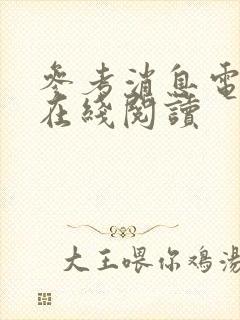 參考消息電
在綫閱讀
大王喂你鸡汤